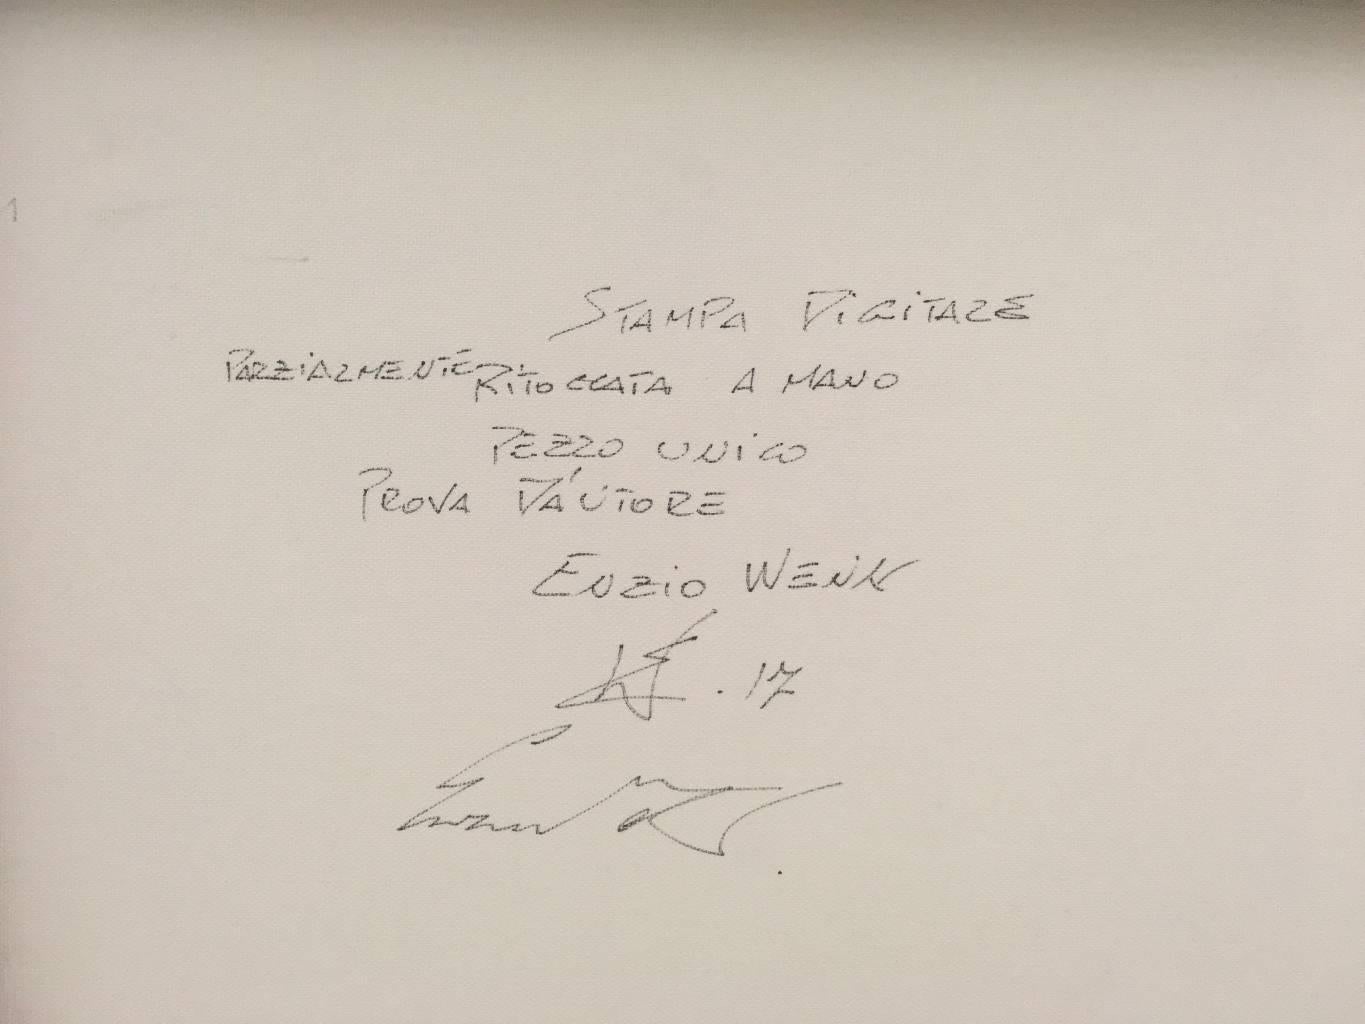 1
STAMPA DIGITALE
PARZIALMENTE RITOCCATA A MANO
PEZZO UNICO
PROVA D'AUTORE
ENZIO WENK
.17